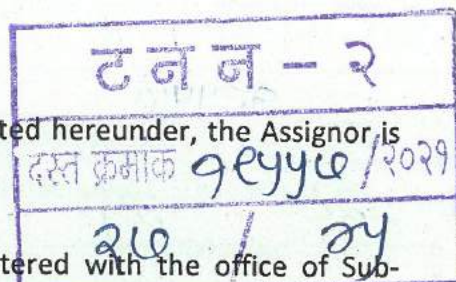 ट न न - २
ted hereunder, the Assignor is
दस्त क्रमाक १९५५७ /२०२१
२७ /
tered with the office of Sub-